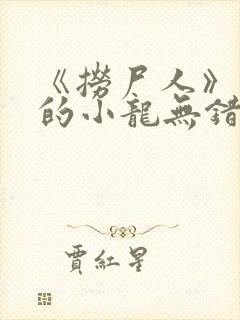 《撈尸人》
的小龍無錯
賈紅星